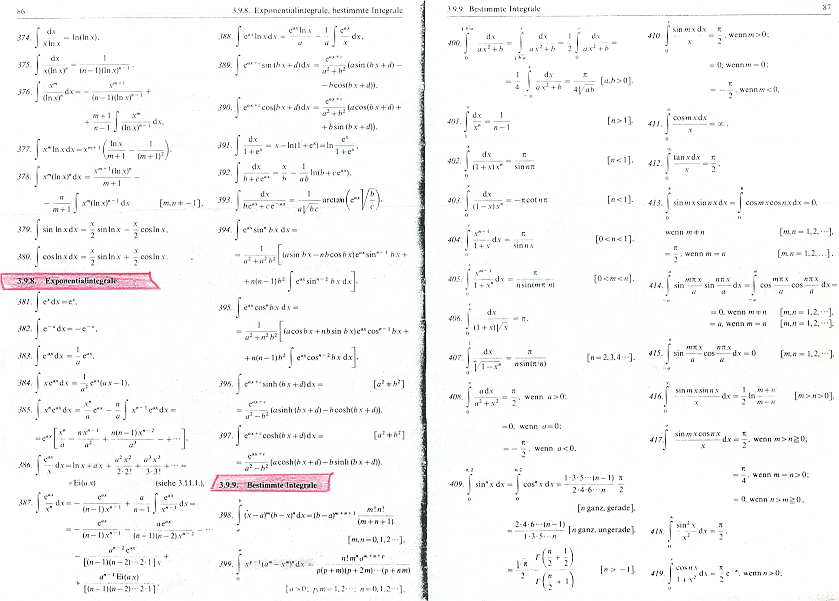 86 3.9.8. Exponentialintegrale, bestimmte Integrale
374. ∫ dx/(x ln x) = ln(ln x).
375. ∫ dx/(x(ln x)ⁿ) = − 1/((n−1)(ln x)ⁿ⁻¹).
376. ∫ xᵐ/(ln x)ⁿ dx = − xᵐ⁺¹/((n−1)(ln x)ⁿ⁻¹) +
+ (m+1)/(n−1) ∫ xᵐ/(ln x)ⁿ⁻¹ dx.
377. ∫ xᵐ ln x dx = xᵐ⁺¹ (ln x/(m+1) − 1/(m+1)²).
378. ∫ xᵐ(ln x)ⁿ dx = xᵐ⁺¹(ln x)ⁿ/(m+1) −
− n/(m+1) ∫ xᵐ(ln x)ⁿ⁻¹ dx [m,n ≠ −1].
379. ∫ sin ln x dx = x/2 sin ln x − x/2 cos ln x.
380. ∫ cos ln x dx = x/2 sin ln x + x/2 cos ln x.
3.9.8. Exponentialintegrale
381. ∫ eˣ dx = eˣ.
382. ∫ e⁻ˣ dx = −e⁻ˣ.
383. ∫ eᵃˣ dx = 1/a eᵃˣ.
384. ∫ x eᵃˣ dx = 1/a² eᵃˣ(ax−1).
385. ∫ xⁿ eᵃˣ dx = xⁿ/a eᵃˣ − n/a ∫ xⁿ⁻¹ eᵃˣ dx =
= eᵃˣ [xⁿ/a − n xⁿ⁻¹/a² + n(n−1)xⁿ⁻²/a³ − + ···].
386. ∫ eᵃˣ/x dx = ln x + ax + a²x²/(2·2!) + a³x³/(3·3!) + ··· =
= Ei(ax) (siehe 3.11.1.).
387. ∫ eᵃˣ/xⁿ dx = − eᵃˣ/((n−1)xⁿ⁻¹) + a/(n−1) ∫ eᵃˣ/xⁿ⁻¹ dx =
= − eᵃˣ/((n−1)xⁿ⁻¹) − a eᵃˣ/((n−1)(n−2)xⁿ⁻²) − ···
− aⁿ⁻² eᵃˣ/([(n−1)(n−2)···2·1]x) +
+ aⁿ⁻¹ Ei(ax)/[(n−1)(n−2)···2·1].
388. ∫ eᵃˣ ln x dx = eᵃˣ ln x/a − 1/a ∫ eᵃˣ/x dx.
389. ∫ eᵃˣ⁺ᶜ sin(bx+d)dx = eᵃˣ⁺ᶜ/(a²+b²) (a sin(bx+d) −
− b cos(bx+d)).
390. ∫ eᵃˣ⁺ᶜ cos(bx+d)dx = eᵃˣ⁺ᶜ/(a²+b²) (a cos(bx+d) +
+ b sin(bx+d)).
391. ∫ dx/(1+eˣ) = x − ln(1+eˣ) = ln eˣ/(1+eˣ).
392. ∫ dx/(b+c eᵃˣ) = x/b − 1/(ab) ln(b+c eᵃˣ).
393. ∫ dx/(b eᵃˣ+c e⁻ᵃˣ) = 1/(a√(bc)) arctan(eᵃˣ √(b/c)).
394. ∫ eᵃˣ sinⁿ bx dx =
= 1/(a²+n²b²) [(a sin bx − nb cos bx)eᵃˣ sinⁿ⁻¹ bx +
+ n(n−1)b² ∫ eᵃˣ sinⁿ⁻² bx dx].
395. ∫ eᵃˣ cosⁿ bx dx =
= 1/(a²+n²b²) [(a cos bx + nb sin bx)eᵃˣ cosⁿ⁻¹ bx +
+ n(n−1)b² ∫ eᵃˣ cosⁿ⁻² bx dx].
396. ∫ eᵃˣ⁺ᶜ sinh(bx+d)dx = [a² ≠ b²]
= eᵃˣ⁺ᶜ/(a²−b²) (a sinh(bx+d) − b cosh(bx+d)).
397. ∫ eᵃˣ⁺ᶜ cosh(bx+d)dx = [a² ≠ b²]
= eᵃˣ⁺ᶜ/(a²−b²) (a cosh(bx+d) − b sinh(bx+d)).
3.9.9. Bestimmte Integrale
398. ∫ (x−a)ᵐ(b−x)ⁿ dx = (b−a)ᵐ⁺ⁿ⁺¹ m!n!/(m+n+1)
[m,n = 0,1,2···].
399. ∫ xᵖ⁻¹(aᵐ−xᵐ)ⁿ dx = n!mⁿaᵐⁿ⁺ᵖ/(p(p+m)(p+2m)···(p+nm))
[a>0; p,m = 1,2···; n = 0,1,2···].
3.9.9. Bestimmte Integrale 87
400. ∫ dx/(ax²+b) = ∫ dx/(ax²+b) = 1/2 ∫ dx/(ax²+b) =
= 1/4 ∫ dx/(ax²+b) = π/(4√(ab)) [a,b>0].
401. ∫ dx/xⁿ = 1/(n−1) [n>1].
402. ∫ dx/((1+x)xⁿ) = π/sin nπ [n<1].
403. ∫ dx/((1−x)xⁿ) = −π cot nπ [n<1].
404. ∫ xⁿ⁻¹/(1+x) dx = π/sin nπ [0<n<1].
405. ∫ xᵐ⁻¹/(1+xⁿ) dx = π/(n sin(mπ/n)) [0<m<n].
406. ∫ dx/((1+x)√x) = π.
407. ∫ dx/√(1−xⁿ) = π/(n sin(π/n)) [n=2,3,4···].
408. ∫ a dx/(a²+x²) = π/2, wenn a>0;
= 0, wenn a=0;
= −π/2, wenn a<0.
409. ∫ sinⁿ x dx = ∫ cosⁿ x dx = 1·3·5···(n−1)/(2·4·6···n) π/2
[n ganz, gerade],
= 2·4·6···(n−1)/(1·3·5···n) [n ganz, ungerade].
= 1/2 √π Γ(n/2 + 1/2)/Γ(n/2 + 1) [n > −1].
410. ∫ sin mx dx/x = π/2, wenn m>0;
= 0, wenn m=0;
= −π/2, wenn m<0.
411. ∫ cos mx dx/x = ∞.
412. ∫ tan x dx/x = π/2.
413. ∫ sin mx sin nx dx = ∫ cos mx cos nx dx = 0,
wenn m≠n [m,n=1,2,···],
= π/2, wenn m=n [m,n=1,2,...].
414. ∫ sin mπx/a sin nπx/a dx = ∫ cos mπx/a cos nπx/a dx =
= 0, wenn m≠n [m,n=1,2,···],
= a, wenn m=n [m,n=1,2,···].
415. ∫ sin mπx/a cos nπx/a dx = 0 [m,n=1,2,···].
416. ∫ sin mx sin nx/x dx = 1/2 ln (m+n)/(m−n) [m>n>0].
417. ∫ sin mx cos nx/x dx = π/2, wenn m>n≧0;
π/4, wenn m=n>0;
= 0, wenn n>m≧0.
418. ∫ sin² x/x² dx = π/2.
419. ∫ cos nx/(1+x²) dx = π/2 e⁻ⁿ, wenn n>0;